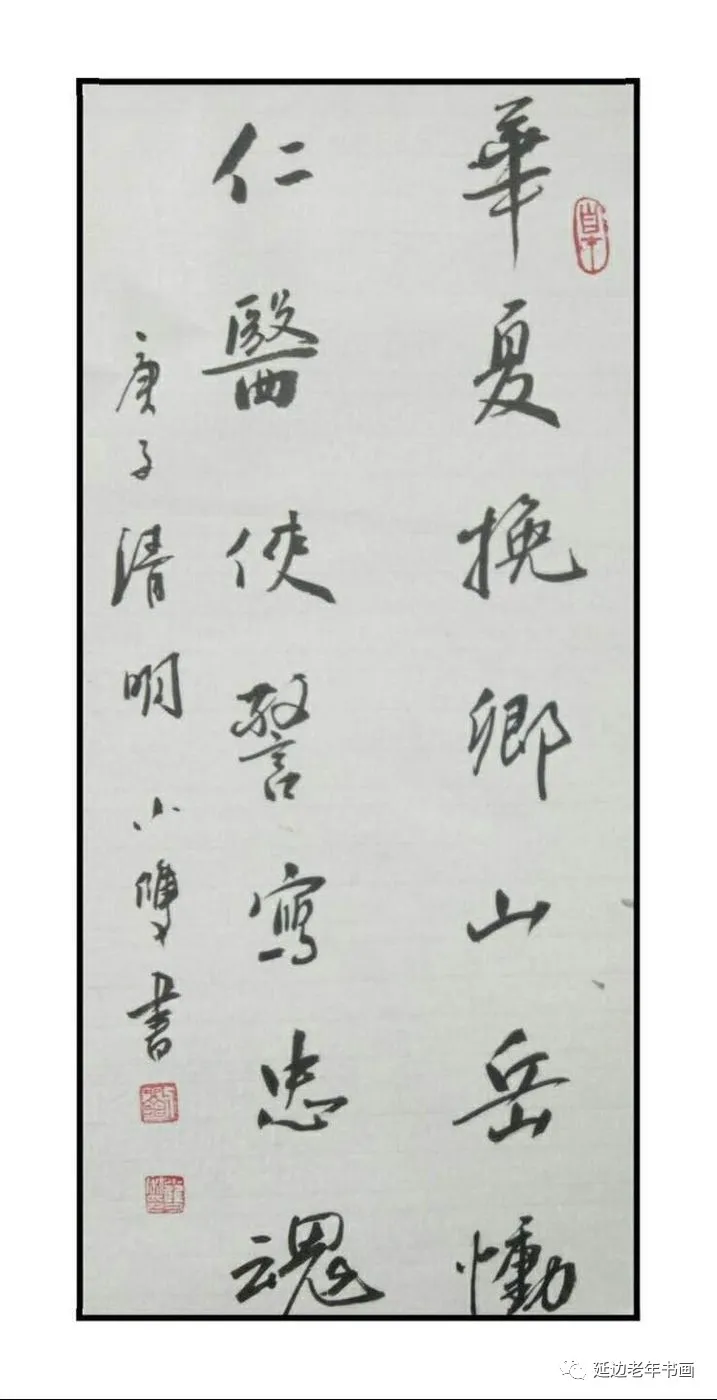 華夏挽卿山岳慟
仁醫俠警寫忠魂
庚子清明 小雙書
延边老年书画